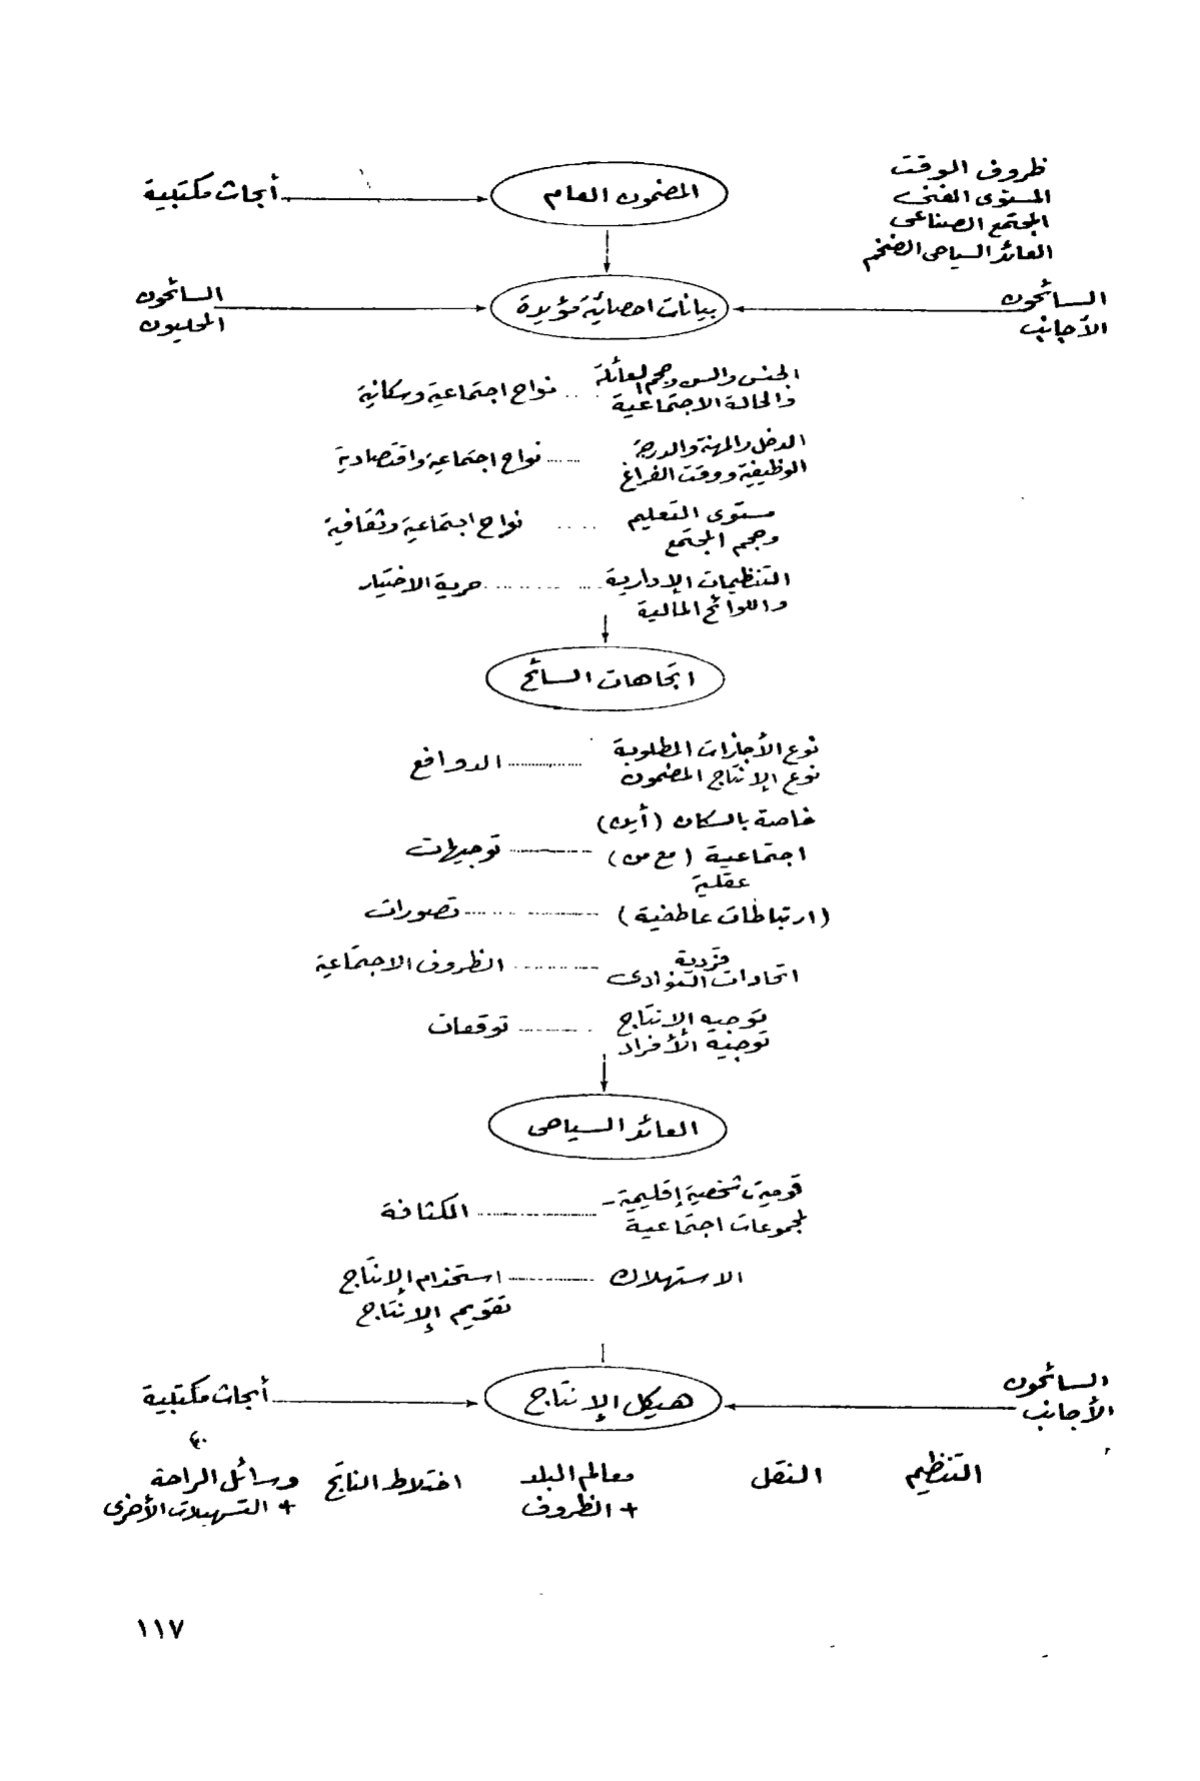 ظروف الوقت
المستوى الفنى
المجتمع الصناعى
العائد السياحى الضخم
المضمون العام
أبحاث مكتبية
السائحون
الأجانب
بيانات احصائية مؤيدة
السائحون
المحليون
الجنس والسن وحجم العائلة
والحالة الاجتماعية
نواح اجتماعية وسكانية
الدخل والمهنة والدرجة
الوظيفية ووقت الفراغ
نواح اجتماعية واقتصادية
مستوى التعليم
وحجم المجتمع
نواح اجتماعية وثقافية
التنظيمات الإدارية
واللوائح المالية
حرية الاختيار
اتجاهات السائح
نوع الأجازات المطلوبة
نوع الإنتاج المضمون
الدوافع
خاصة بالسكان (أين)
اجتماعية (مع من)
توجيهات
عقلية
(ارتباطات عاطفية)
تصورات
فردية
اتحادات النوادى
الظروف الاجتماعية
توجيه الإنتاج
توجيه الأفراد
توقعات
العائد السياحى
قومية، شخصية إقليمية -
لمجموعات اجتماعية
الكثافة
الاستهلاك
استخدام الإنتاج
تقويم الإنتاج
السائحون
الأجانب
هيكل الإنتاج
أبحاث مكتبية
التنظيم
النقل
معالم البلد
+ الظروف
اختلاط الناتج
وسائل الراحة
+ التسهيلات الأخرى
١١٧